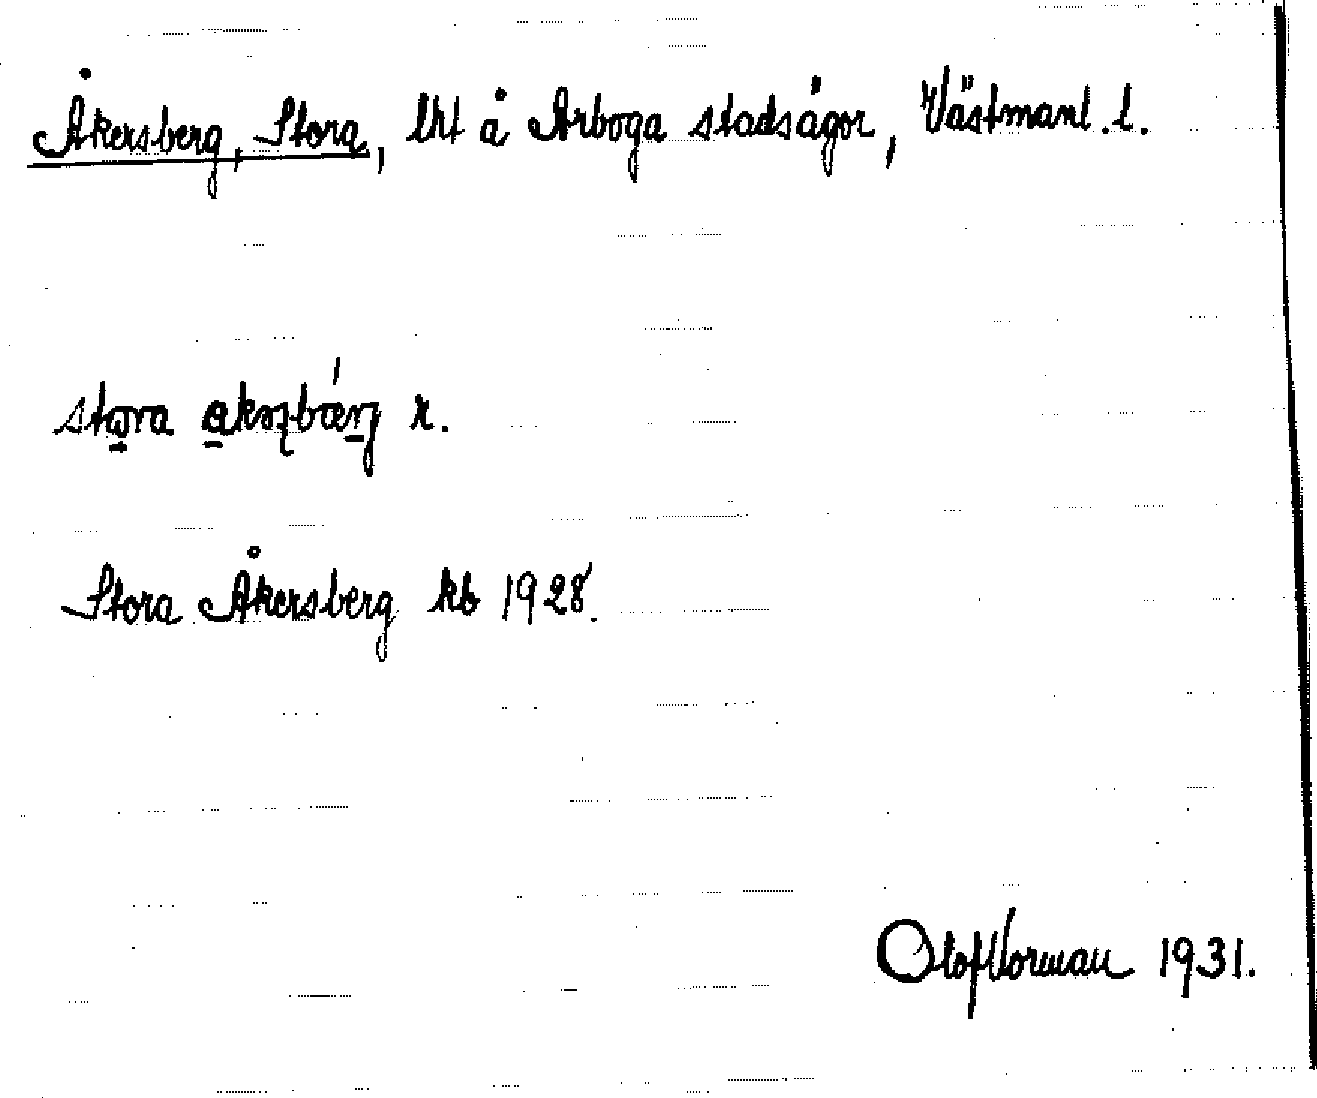 Åkersberg, Stora, lht å Arboga stadsägor, Västmanl. l.
Stora Åkersberg kb 1928.
Olof Vorman 1931.